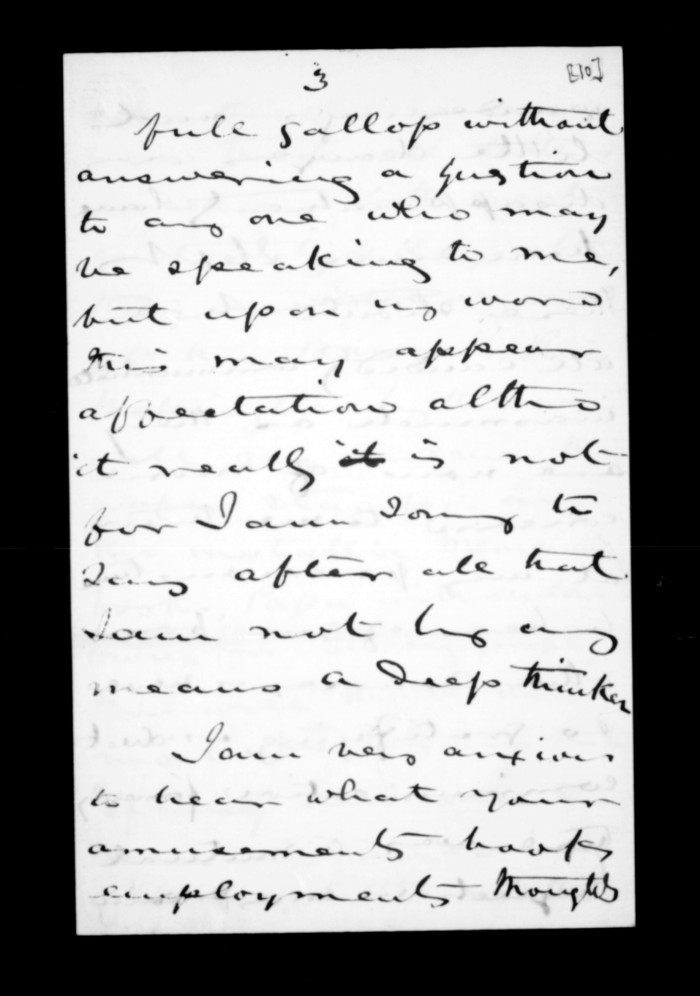 3 [10]
full gallop without
answering a question
to any one who may
be speaking to me,
but upon my word
this may appear
affectation altho
it really it is not
for I am going to
say after all that
I am not by any
means a deep thinker
I am very anxious
to hear what your
amusements books
employments thoughts